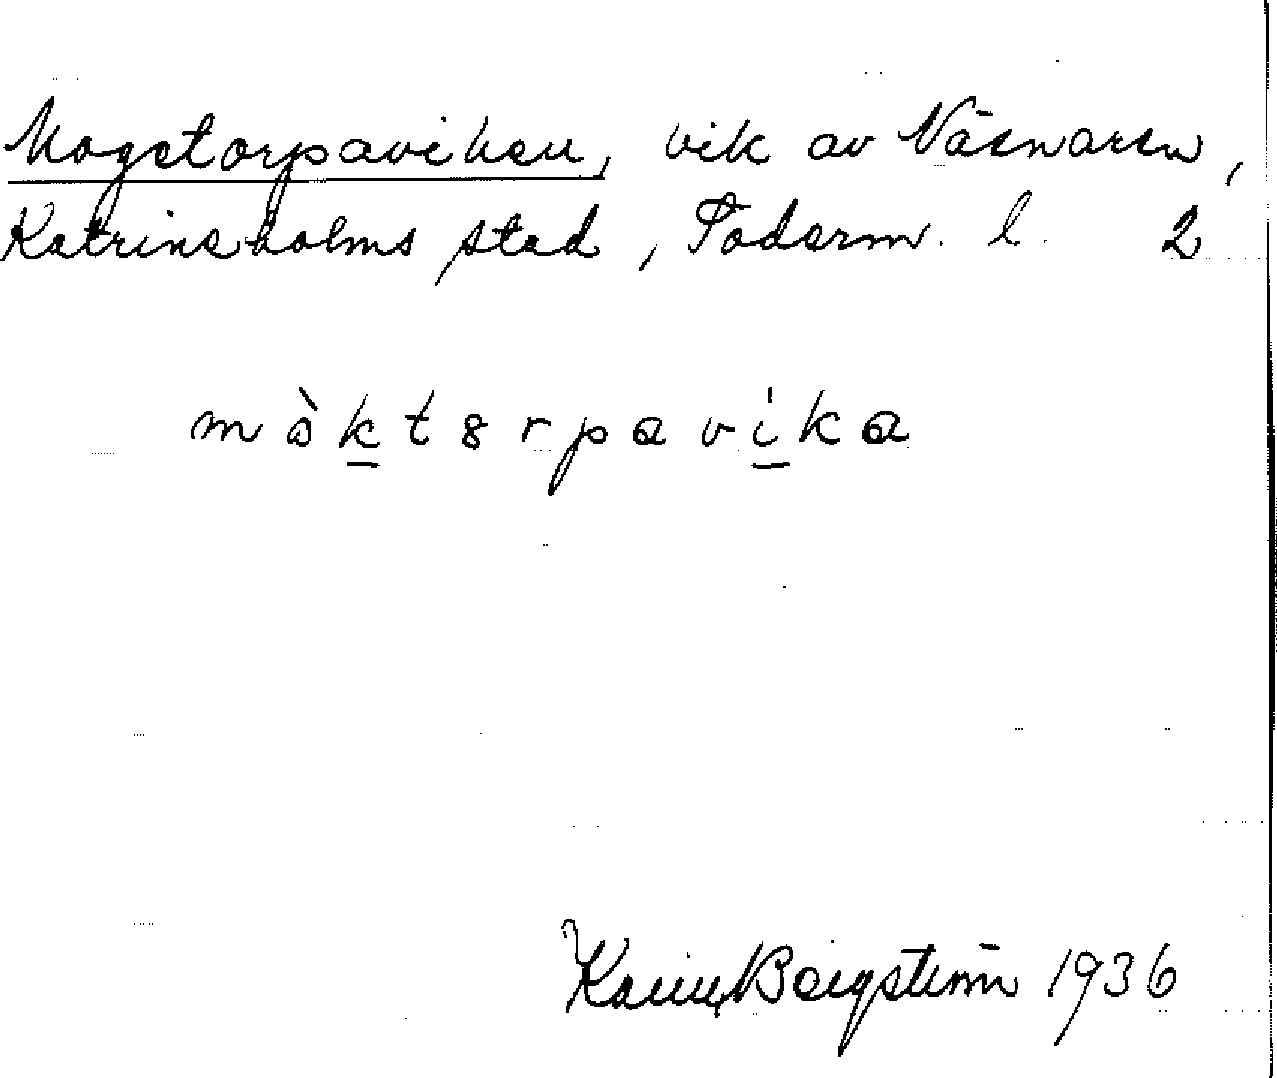 Mogetorpaviken, vik av Näsnaren,
Katrineholms stad, Söderm. l. 2
mòktɞrpavika
Karin Bergström 1936